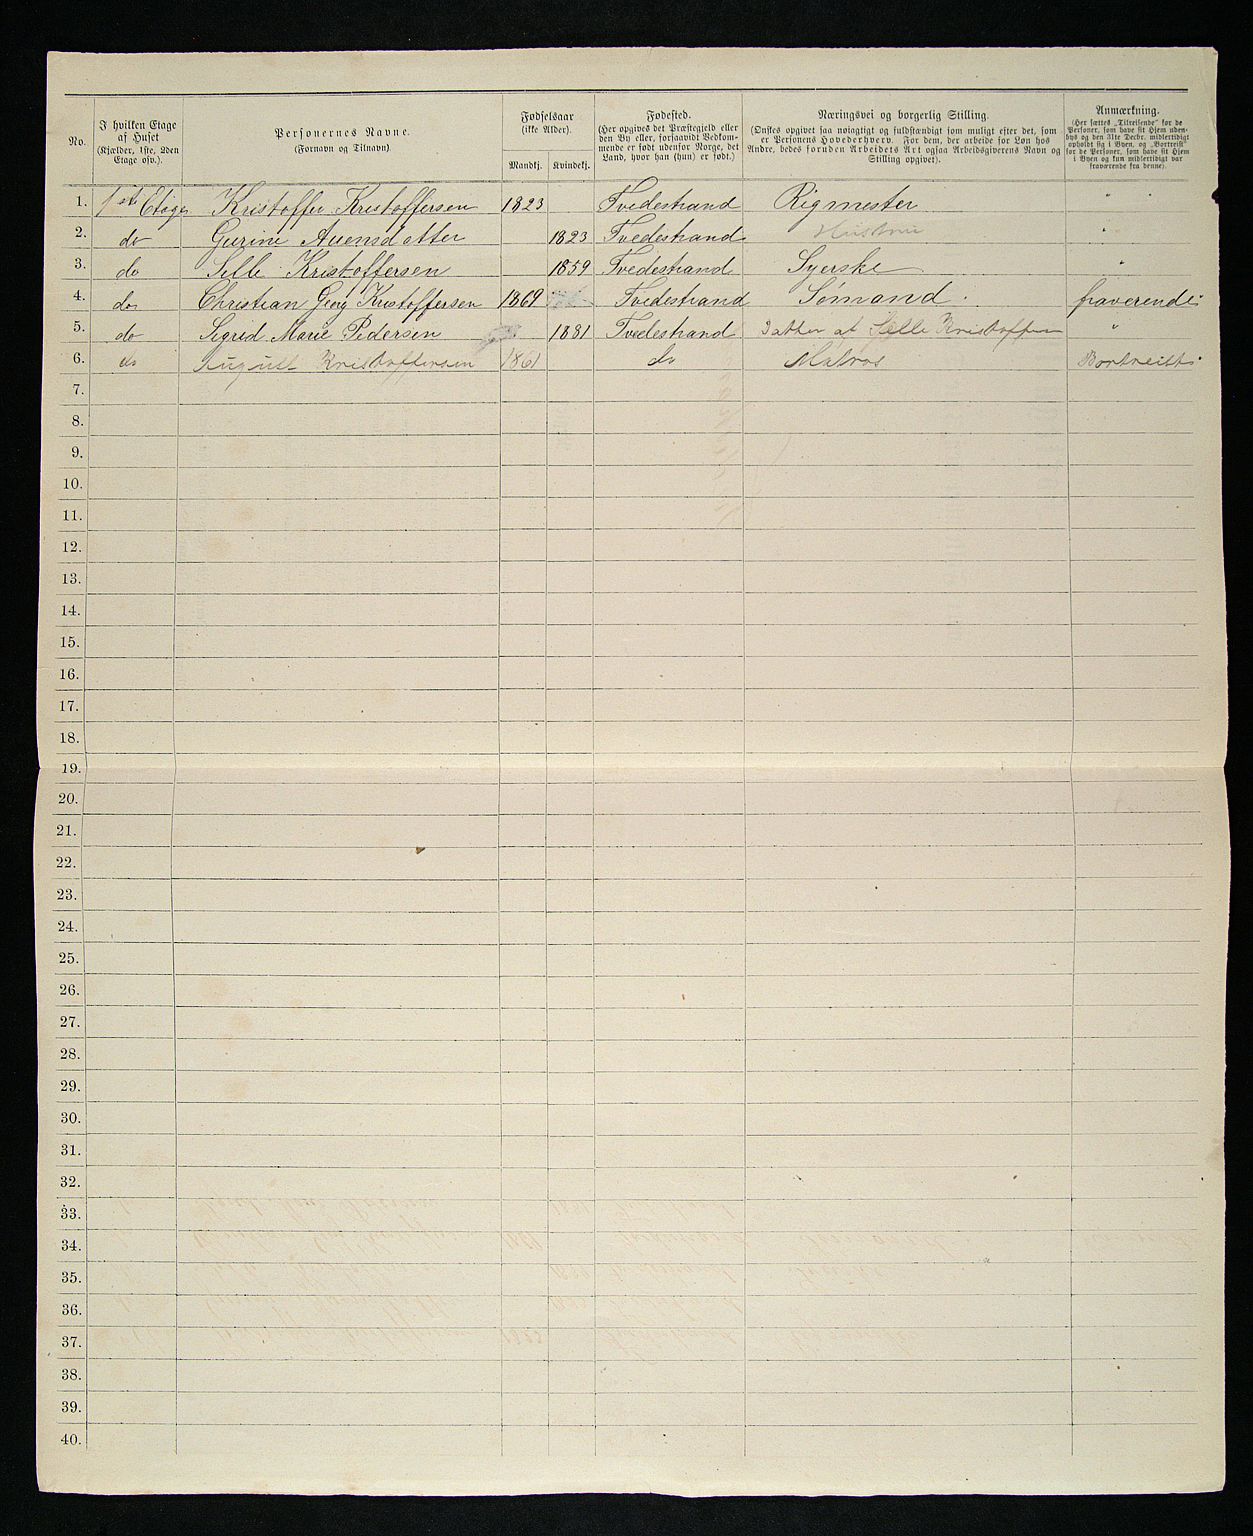 No.
I hvilken Etage
af Huset
(Kjælder, 1ste, 2den
Etage osv.).
Personernes Navne.
(Fornavn og Tilnavn).
Fødselsaar
(ikke Alder).
Mandkj. Kvindekj.
Fødested.
(Her opgives det Præstegjeld eller
den By eller, forsaavidt Vedkom-
mende er født udenfor Norge, det
Land, hvor han (hun) er født.)
Næringsvei og borgerlig Stilling.
(Ønskes opgivet saa nøiagtigt og fuldstændigt som muligt efter det, som
er Personens Hovederhverv. For dem, der arbeide for Løn hos
Andre, bedes foruden Arbeidets Art ogsaa Arbeidsgiverens Navn og
Stilling opgivet).
Anmærkning.
(Her sættes „Tilreisende“ for de
Personer, som have sit Hjem uden-
bys og den 31te Decbr. midlertidigt
opholdt sig i Byen, og „Bortreist“
for de Personer, som have sit Hjem
i Byen og kun midlertidigt var
fraværende fra denne).
1. 1ste Etage Kristoffer Kristoffersen 1823 Tvedestrand Rigmester "
2. do Gurine 1823 Tvedestrand Hustru "
3. do Selle Kristoffersen 1859 Tvedestrand Syerske "
4. do Christian Georg Kristoffersen 1869 Tvedestrand Sømand fraverende
5. do Sigrid Marie Pedersen 1881 Tvedestrand Datter af Selle Kristoffersen "
6. do August Kristoffersen 1861 do Matros Bortreist
7.
8.
9.
10.
11.
12.
13.
14.
15.
16.
17.
18.
19.
20.
21.
22.
23.
24.
25.
26.
27.
28.
29.
30.
31.
32.
33.
34.
35.
36.
37.
38.
39.
40.